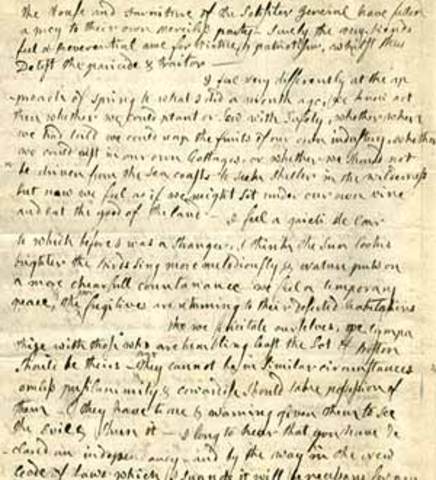 The House and Furniture of the Soliciter General have fallen
a prey to their own merciless party — Surely the very Fiends
feel a Reverential awe for Virtue & patriotism, whilst they
Detest the paricide & traitor —
I feel very differently at the ap
proach of spring to what I did a month ago, we knew not
then whether we could plant or sow with safety, whether when
we had toild we could reap the fruits of our own industery, whether
we could rest in our own Cottages, or whether we should not
be driven from the sea coasts to seek shelter in the wilderness
but now we feel as if we might sit under our own vine
and eat the good of the land — I feel a gaieti de Coar
to which before I was a stranger, I think the Sun looks
brighter the Birds sing more melodiously & Nature puts on
a more chearfull countanance we feel a temporary
peace, & the fugitives are returning to their deserted habitations
tho we felicitate ourselves, we sympa
thize with those who are trembling least the Lot of Boston
should be theirs — they cannot be in similar circumstances
unless pusilanimity & cowardise should take possession of
them — They have time & warning given them to see
the Evil & shun it — I long to hear that you have de
clared an independancy — and by the way in the new
Code of Laws which I suppose it will be necessary for you